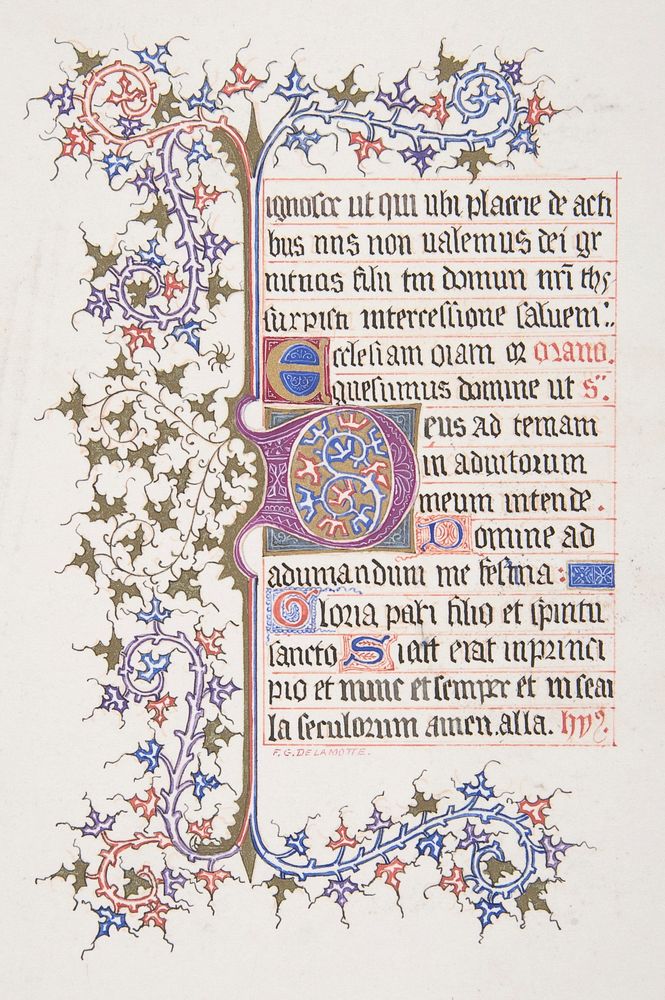 ignosce ut qui ubi placere de acti
bus nns non ualemus dei gr
nitricis filii tm domini nri ihs
surxpisti intercessione saluem:.
Ecclesiam oram or Orano.
quesumus domine ut s
Deus ad temam
in adiutorium
meum intende.
Domine ad
adiuuandum me festina:
Gloria patri filio et spiritu
sancto Sicut erat inprinci
pio et nunc et semper et in secu
la seculorum amen. alla. hy
F. G. DELAMOTTE.